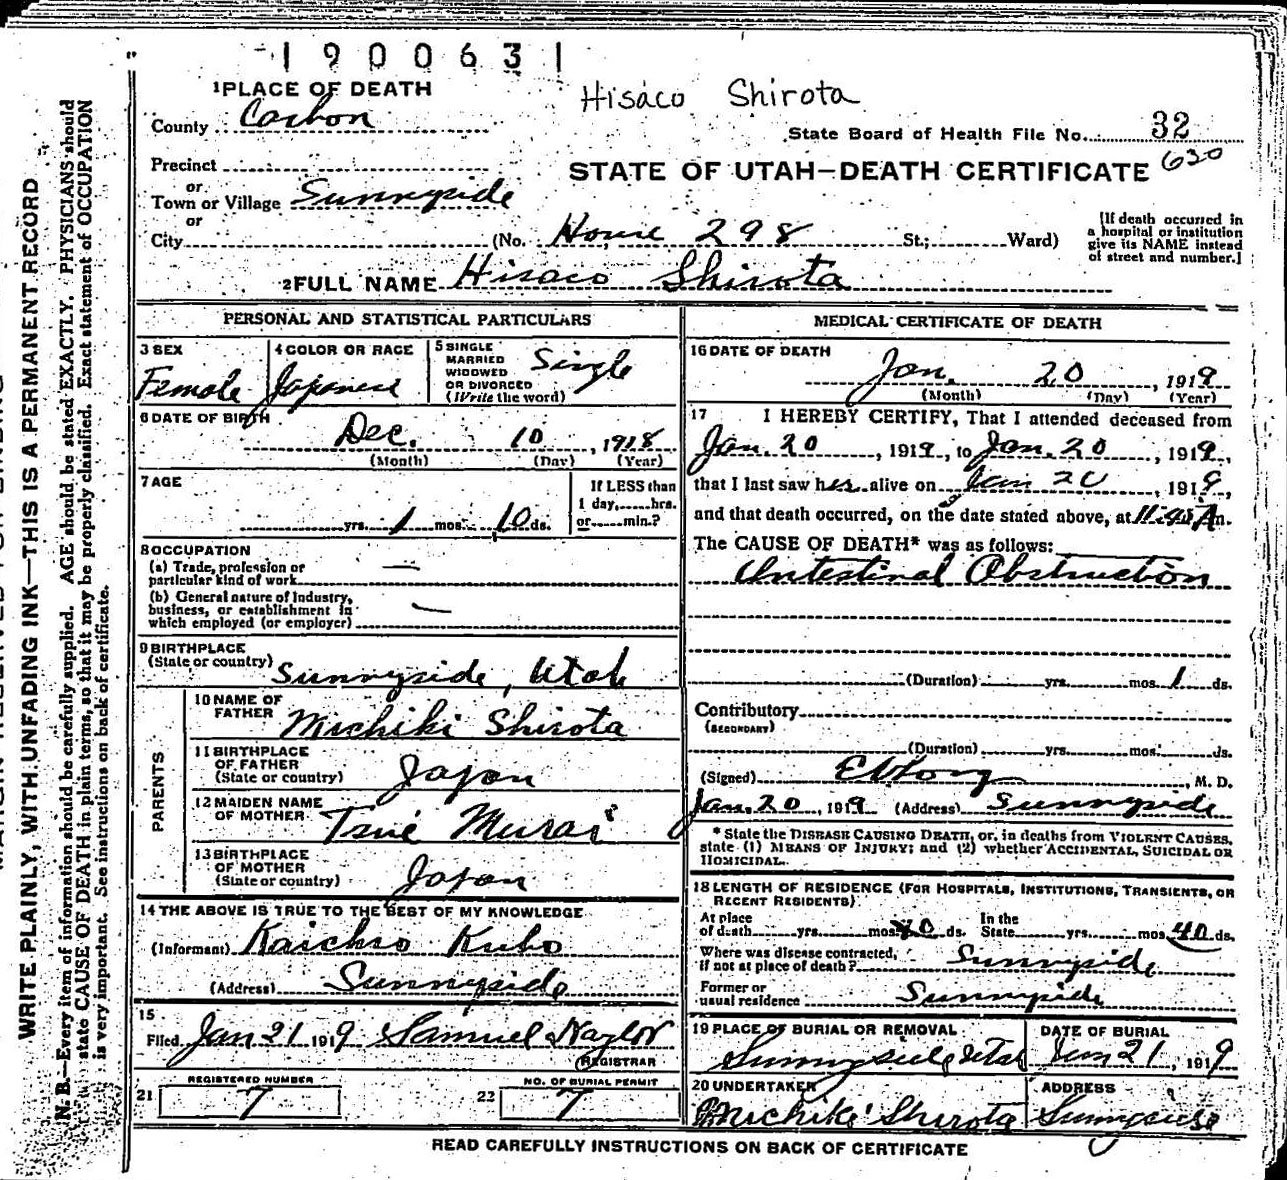 1900631
Hisaco Shirota
1 PLACE OF DEATH
County Carbon
State Board of Health File No. 32
630
Precinct
or
Town or Village Sunnyside
or
City (No. House 298 St.; Ward)
STATE OF UTAH—DEATH CERTIFICATE
[If death occurred in
a hospital or institution
give its NAME instead
of street and number.]
2 FULL NAME Hisaco Shirota
PERSONAL AND STATISTICAL PARTICULARS
3 SEX
Female
4 COLOR OR RACE
Japanese
5 SINGLE
MARRIED
WIDOWED
OR DIVORCED
(Write the word)
Single
6 DATE OF BIRTH
Dec. 10, 1918
(Month) (Day) (Year)
7 AGE
yrs. 1 mos. 10 ds.
If LESS than
1 day, hrs.
or min.?
8 OCCUPATION
(a) Trade, profession or
particular kind of work —
(b) General nature of Industry,
business, or establishment in
which employed (or employer) —
9 BIRTHPLACE
(State or country) Sunnyside, Utah
PARENTS
10 NAME OF
FATHER Michiki Shirota
11 BIRTHPLACE
OF FATHER
(State or country) Japan
12 MAIDEN NAME
OF MOTHER Tsuie Murai
13 BIRTHPLACE
OF MOTHER
(State or country) Japan
14 THE ABOVE IS TRUE TO THE BEST OF MY KNOWLEDGE
(Informant) Kaichro Kubo
(Address) Sunnyside
15
Filed Jan 21 1919 Samuel Naylor
REGISTRAR
REGISTERED NUMBER
21 7
NO. OF BURIAL PERMIT
22 7
MEDICAL CERTIFICATE OF DEATH
16 DATE OF DEATH
Jan. 20, 1919
(Month) (Day) (Year)
17 I HEREBY CERTIFY, That I attended deceased from
Jan. 20, 1919, to Jan. 20, 1919,
that I last saw her alive on Jan 20, 1919,
and that death occurred, on the date stated above, at 11:45 A m.
The CAUSE OF DEATH* was as follows:
Intestinal Obstruction
(Duration) yrs. mos. 1 ds.
Contributory
(SECONDARY)
(Duration) yrs. mos. ds.
(Signed) , M. D.
Jan. 20, 1919 (Address) Sunnyside
* State the DISEASE CAUSING DEATH, or, in deaths from VIOLENT CAUSES,
state (1) MEANS OF INJURY; and (2) whether ACCIDENTAL, SUICIDAL OR
HOMICIDAL.
18 LENGTH OF RESIDENCE (FOR HOSPITALS, INSTITUTIONS, TRANSIENTS, OR
RECENT RESIDENTS)
At place
of death yrs. mos. 40 ds. In the
State yrs. mos. 40 ds.
Where was disease contracted,
if not at place of death? Sunnyside
Former or
usual residence Sunnyside
19 PLACE OF BURIAL OR REMOVAL
Sunnyside Utah
DATE OF BURIAL
Jan 21, 1919
20 UNDERTAKER
Michiki Shirota
ADDRESS
Sunnyside
READ CAREFULLY INSTRUCTIONS ON BACK OF CERTIFICATE
WRITE PLAINLY, WITH UNFADING INK—THIS IS A PERMANENT RECORD
N. B.—Every item of information should be carefully supplied. AGE should be stated EXACTLY. PHYSICIANS should
state CAUSE OF DEATH in plain terms, so that it may be properly classified. Exact statement of OCCUPATION
is very important. See instructions on back of certificate.